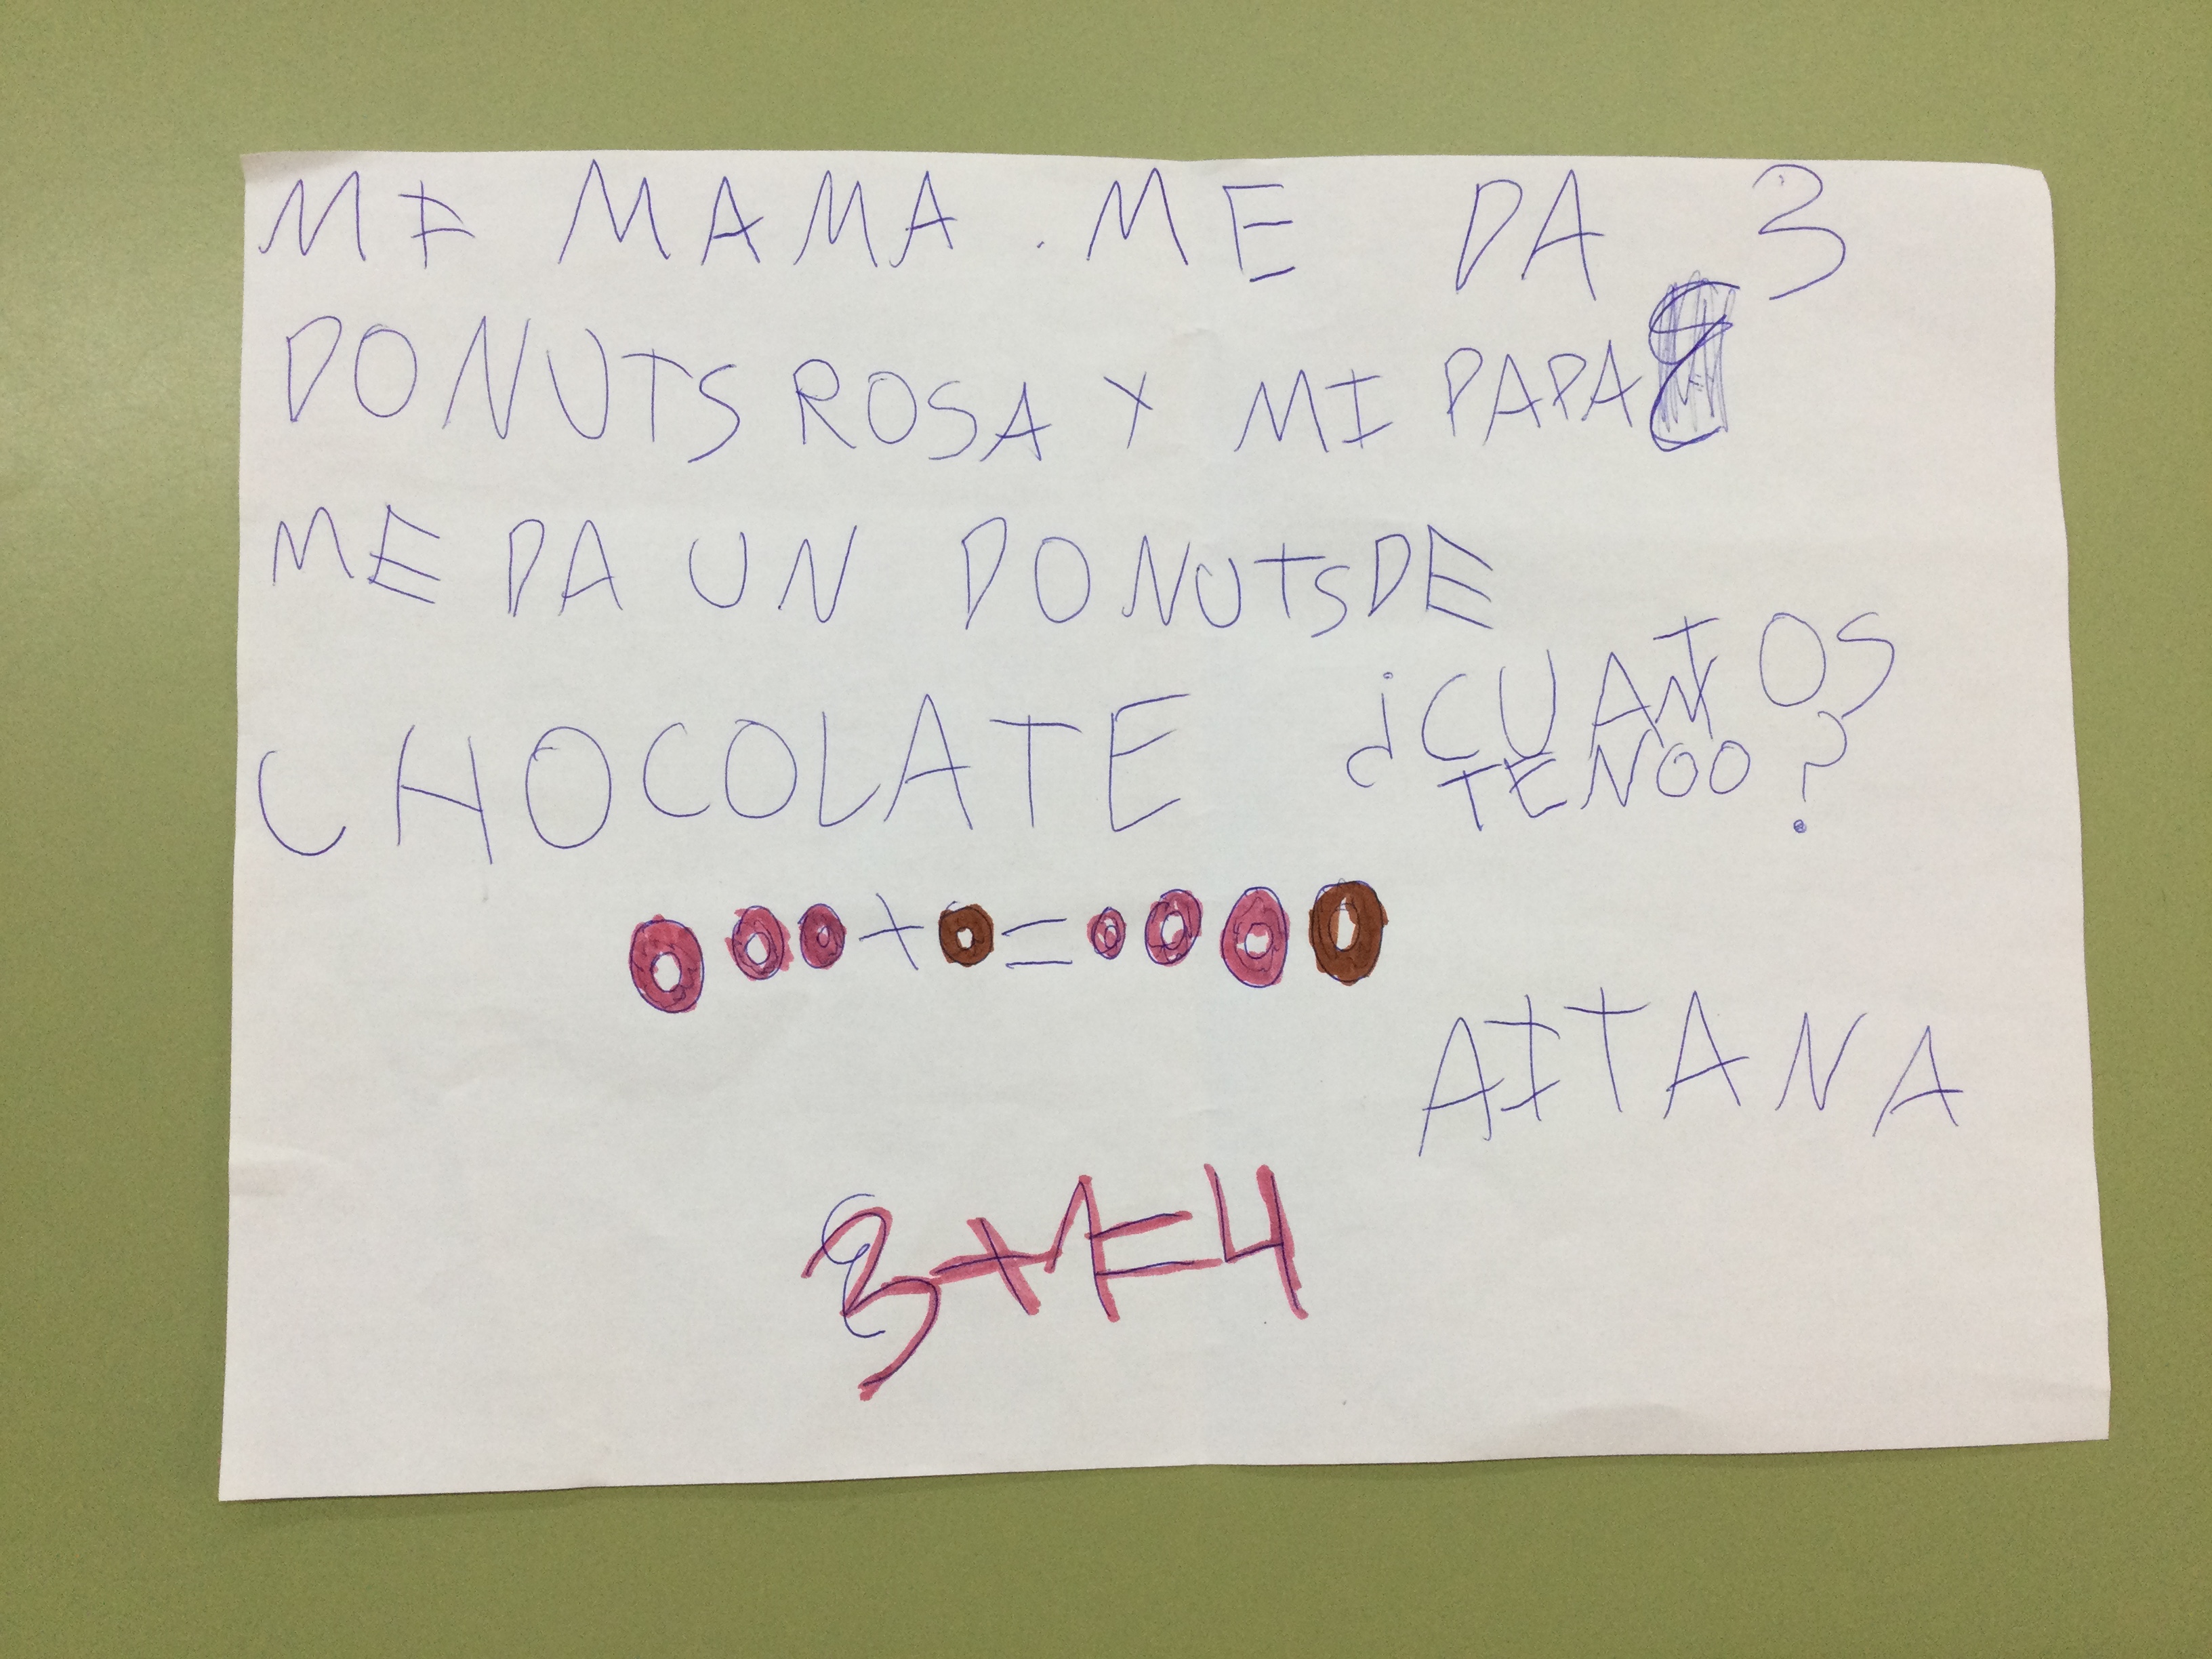 MI MAMA . ME DA 3
DONUTS ROSA Y MI PAPA
ME DA UN DONUTS DE
CHOCOLATE ¿CUANTOS
TENOO?
+ =
AITANA
3+1=4